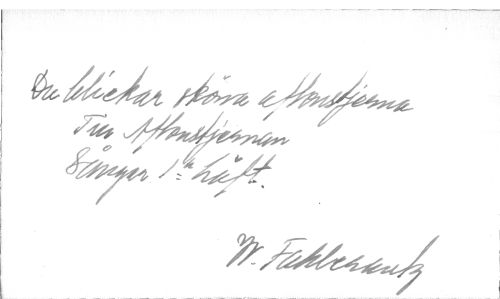 Du blickar sköna aftonstjerna
Till Aftonstjernan
Sånger 1=a häft.
W. Fahlcrantz